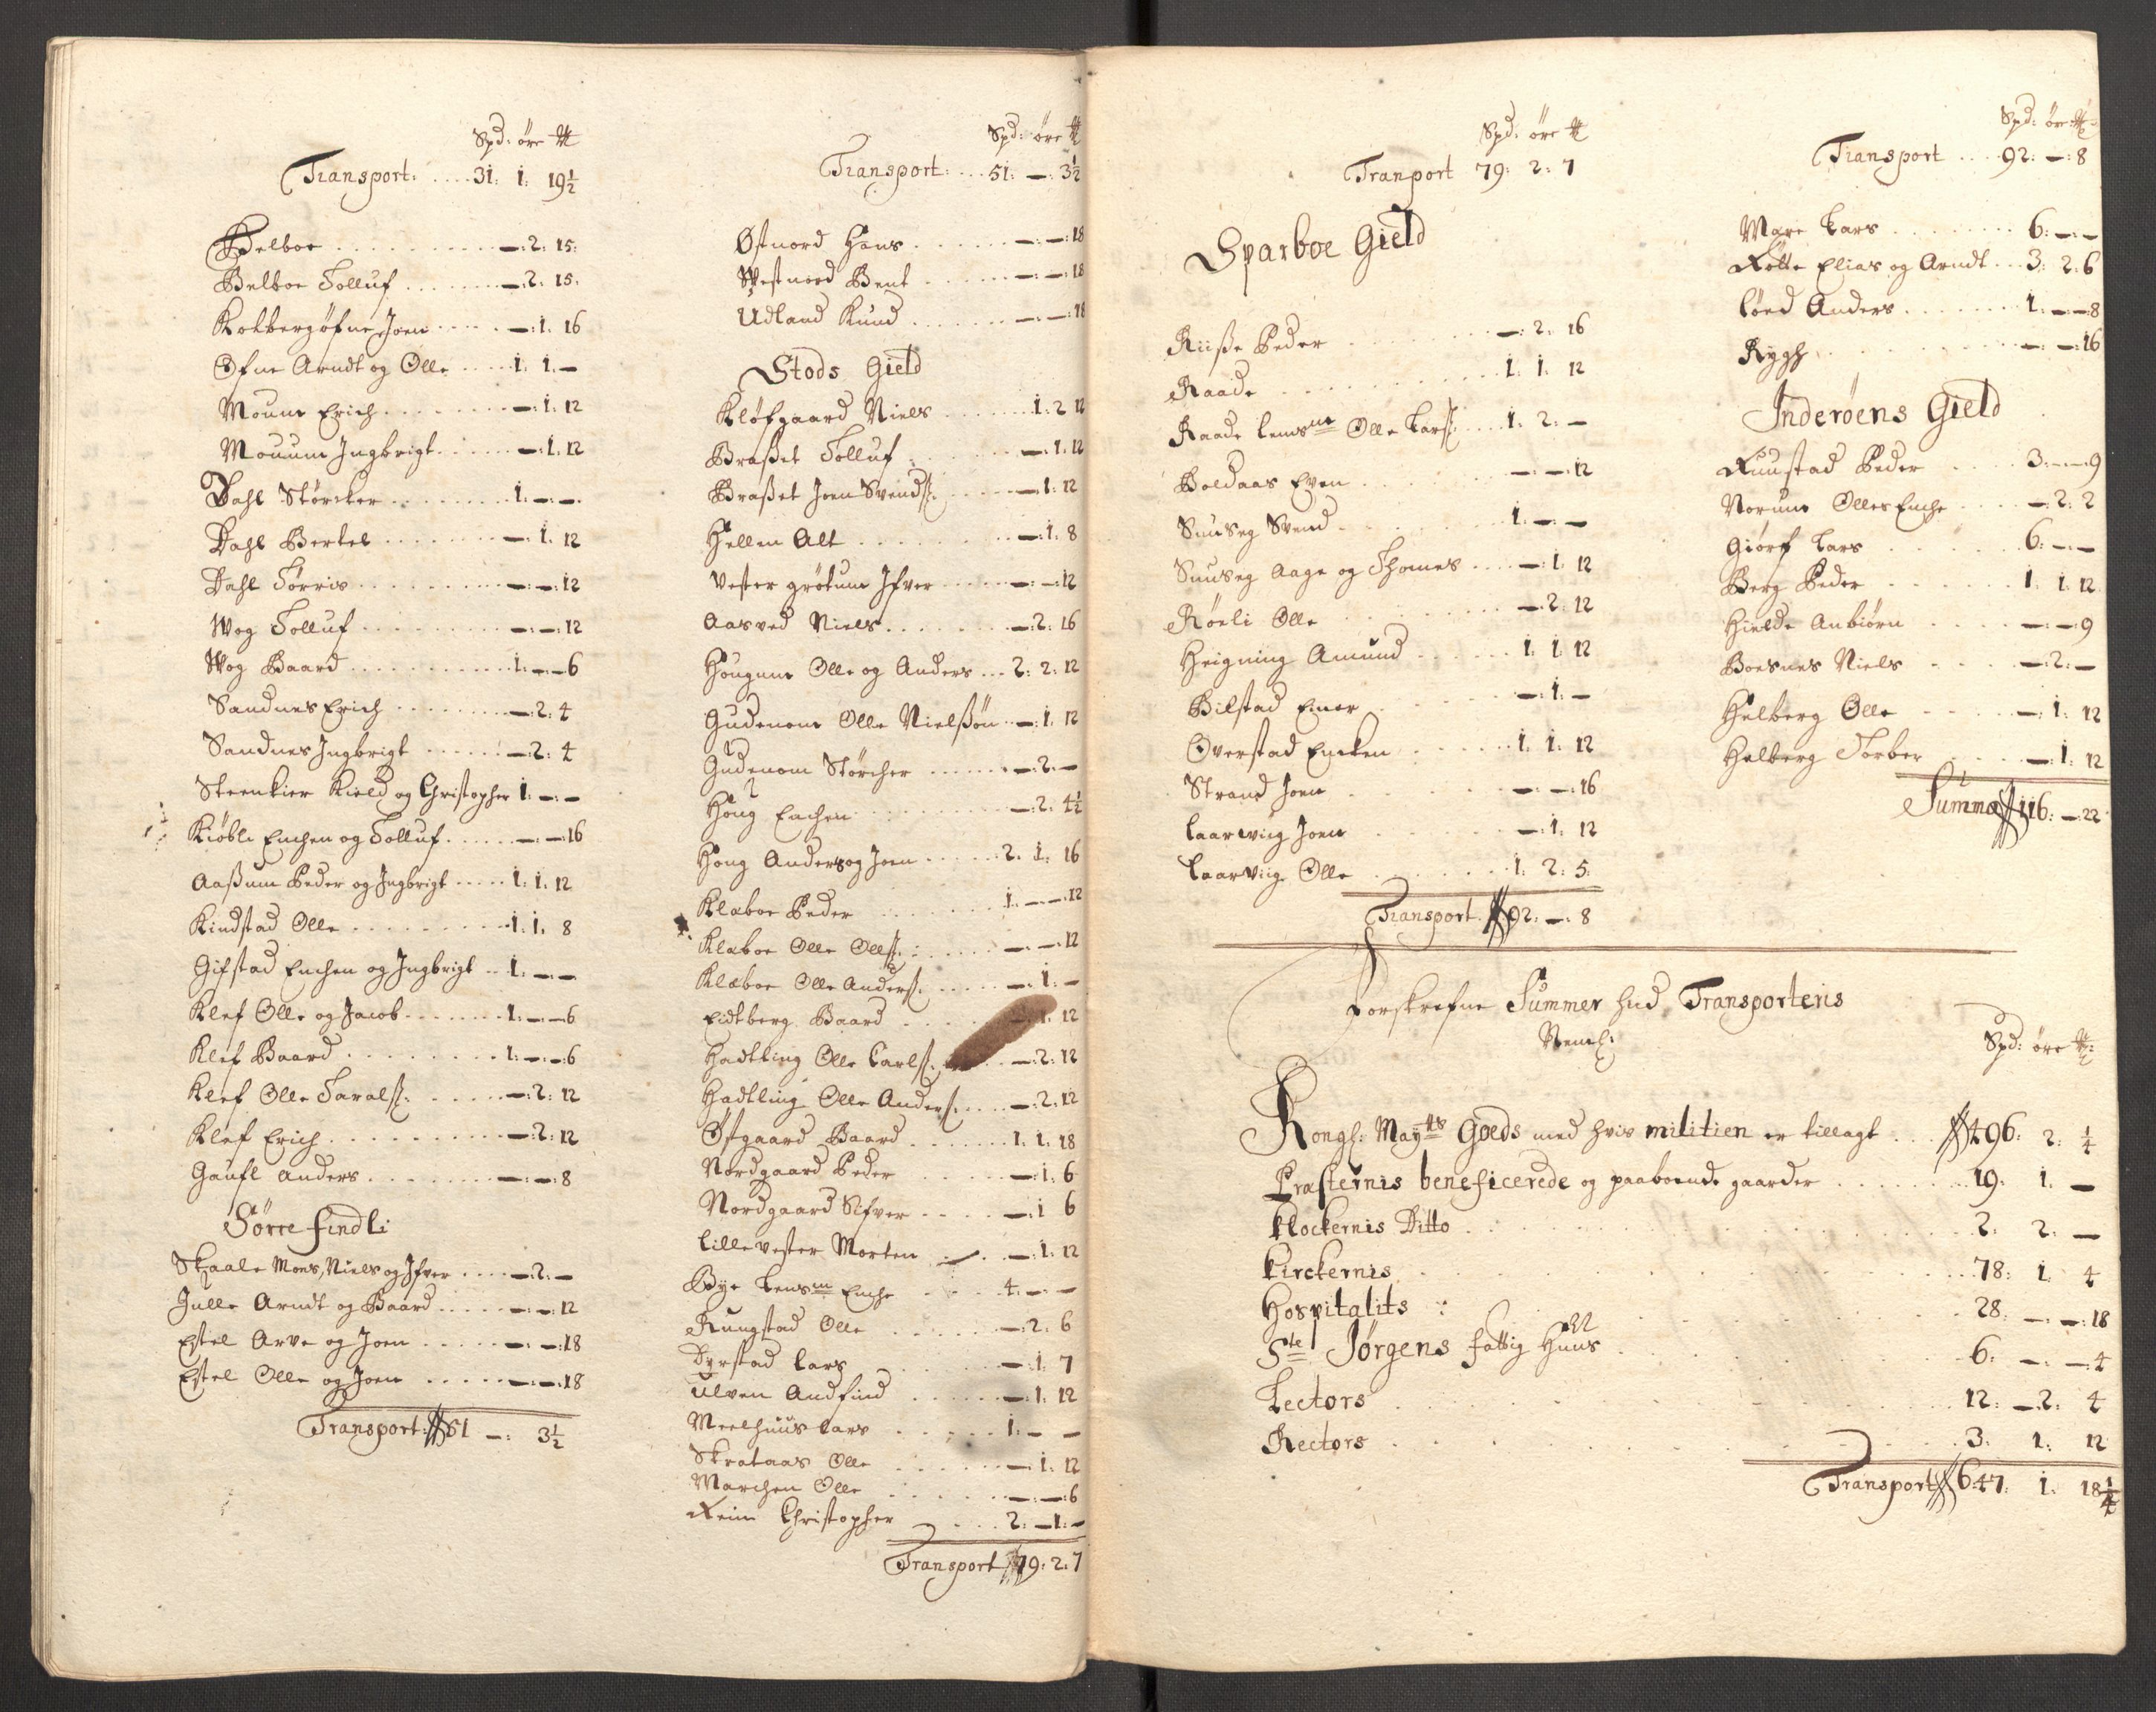 Spd: öre ℔
Transport: .... 31. 1. 19½
Belboe ......... —. 2. 15.
Belboe Tolluf ....... —. 2. 15.
Kolbergöfne Joen ..... —. 1. 16
Ofne Arndt og Olle ..... 1. 1. —
Moum Erich ........ —. 1. 12
Mouum Ingbrigt ...... —. 1. 12
Dahl Störcker ........ 1. —. —.
Dahl Bertel ........ —. 1. 12
Dahl Törris ......... —. —. 12
Wog Tolluf ......... —. —. 12
Wog Baard ......... 1. —. 6
Sandnes Erich ....... —. 2. 4
Sandnes Ingbrigt ...... —. 2. 4
Steenkier Kield og Christopher 1. —. —
Kiöbli Enchen og Tolluf ...... —. —. 16
Aassum Peder og Ingbrigt ..... 1. 1. 12
Kindstad Olle ......... 1. 1. 8
Gifstad Enchen og Ingbrigt .. 1. —. —
Klef Olle og Jacob ....... 1. —. 6
Klef Baard ........ 1. —. 6
Klef Olle Taralss: ..... —. 2. 12
Klef Erich ......... —. 2. 12
Gaufl Anders ....... —. —. 8
Sörre findli
Skaale Mons, Niels og Ifver .... —. 2. —
Julle Arndt og Baard ..... —. —. 12
Estel Arve og Joen ..... —. —. 18
Estel Olle og Joen ..... —. —. 18
Transport: 51 —: 3½
Spd: öre ℔
Transport: ... 51. —. 3½
Østnord Hans ...... —. —. 18
Westnord Bent .... —. —. 18
Udland Knud ...... —. —. 18
Stods Gield
Kløfgaard Niels ...... 1. 2 12
Brasset Tolluf ...... —. 1. 12
Brasset Joen Svends: ..... —. 1. 12
Hellem Alt ........ —. 1. 8
Vester grötum Ifver ..... —. —. 12
Aasved Niels ....... —. 2. 16
Hougum Olle og Anders ... 2. 2. 12
Gudenom Olle Nielssön .. —. 1. 12
Gudenom Störcher ...... —. 2. —
Houg Enchen ...... —. 2. 4½
Houg Anders og Joen ..... 2. 1. 16
Klæboe Peder ...... 1. —. —. 12
Klæboe Olle Ollss: ..... —. —. 12
Klæboe Olle Anders: ..... —. 1. —
Eidtberg Baard ..... —. 1. 12
Hadtling Olle Carlss: .... —. 2. 12
Hadtling Olle Anders: .... —. 2. 12
Østgaard Baard ...... 1. 1. 18
Nordgaard Peder ..... —. 1. 6
Nordgaard Sifver .... —. 1 6
Lille vester Morten ... —. 1. 12
Bye Lensm: Enche .... 4. —. —
Rungstad Olle ...... —. 2. 6
Dyrstad Lars ...... —. 1. 7
Ulven Andfind ...... —. 1. 12
Meelhuus Lars ..... 1. — —
Skrataas Olle ..... —. 1. 12
Marchen Olle ...... —. —. 6
Xeim Christopher .... 2. —1. —
Transport 79. 2. 7
Spd: öre ℔
Tranport 79: 2: 7
Sparboe Gield
Riisse Peder ...... —. 2. 16
Raade ......... 1. 1. 12
Raade Lensm: Olle Larss: .... 1. 2. —
Boldaas Even ...... —. —. 12
Suuseg Svend ....... 1. —. —
Suuseg Aage og Thomes .... —. 1. 12
Röeli Olle ....... —. 2. 12
Heigning Amund ..... 1. 1. 12
Bilstad Einer ..... —. 1. —
Overstad Encken ..... 1. 1. 12
Strand Joen ...... —. —. 16
Laarwiig Joen ..... —. 1. 12
Laarviig Olle ...... 1. 2. 5.
Transport 92. —. 8
Spd: öre ℔
Transport .... 92. —. 8
Mære Lars ....... 6. —. —
Xölte Elias og Arndt ... 3. 2. 6
löed Anders ...... 1. —. 8
Rygh ....... —. —. 16
Inderøens Gield
Xuustad Peder .... 3. —. 9
Norum Olles Enche .... —. 2. 2
Giörf Lars ...... 6. —. —
Berg Peder ...... 1. 1. 12
Hielde Anbiörn .... —. —. 9
Boesnes Niels .... —. 2. —
Halberg Olle .... —. 1. 12
Halberg Torber .... —. 1. 12
Summa 116. —. 22
Forskrefne Summer hid Transporteris
Neml:
Spd: öre ℔
Kongl: Mayts Goeds med hvis militien er tillagt ... 496. 2. ¼
Præsternis beneficerede og paaboende gaarder ...... 19. 1. —
Klockernis Ditto ........ 2. 2. —
Kirckernis ........ 78. 1. 4
Hospitalits ........ 28. —. —. 18
Ste Jörgens fattig Huus ....... 6. —. —. 4
Lectors ........ 12. —. 2. 4
Rectors ........ 3. 1. 12
Transport 647. 1. 18¼